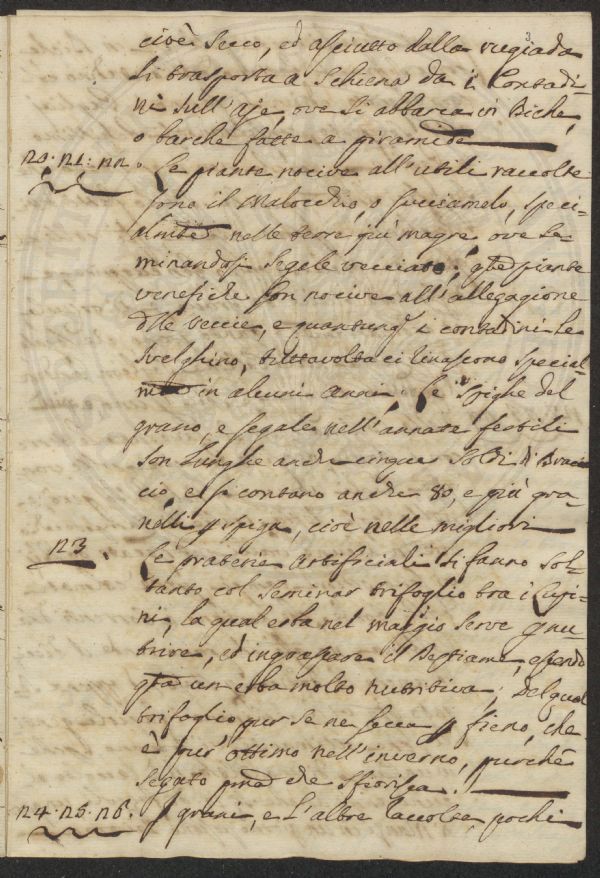 3
cioè secco, ed asciutto dalla rugiada
si trasporta a schiena da i Contadi-
ni sull'aje, ove si abbarca in Biche,
o barche fatte a piramide
20. 21. 22. Le piante nocive all'utili raccolte
sono il Malocchio, o succiamelo, speci-
almte nelle terre più magre ove se-
minandosi segale vecciate; qte piante
venefiche son nocive all'allegagione
dlle veccie, e quantunq i contadini le
svelghino, tuttavolta ci rinascono special-
mte in alcuni anni. Le spighe del
grano, e segale nell'annate fertili
son lunghe anche cinque soldi di Brac-
cio, e si contano anche 80, e più gra-
nelli p spiga, cioè nelle migliori
23. Le praterie artificiali si fanno sol-
tanto col seminar trifoglio tra i Lupi-
ni, la qual erba nel maggio serve p nu-
trire, ed ingrassare il Bestiame, essendo
qta un erba molto nutritiva; del qual
trifoglio pur se ne secca p fieno, che
è pur ottimo nell'inverno, purchè
segato pma che sfiorisca.
24. 25. 26. I grani, e l'altre raccolte, pochi